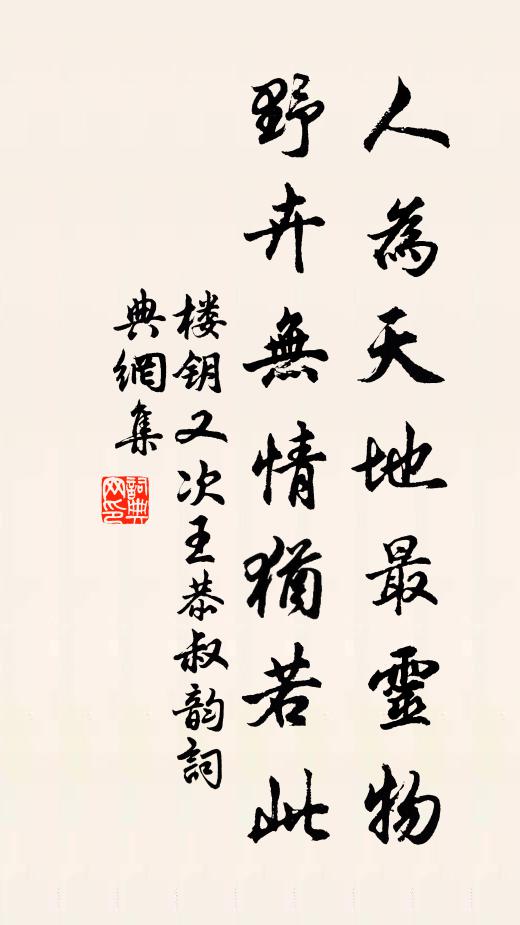 人為天地最靈物
野卉無情猶若此
楼钥又次王恭叔韵詞
典網集
詞典
网印